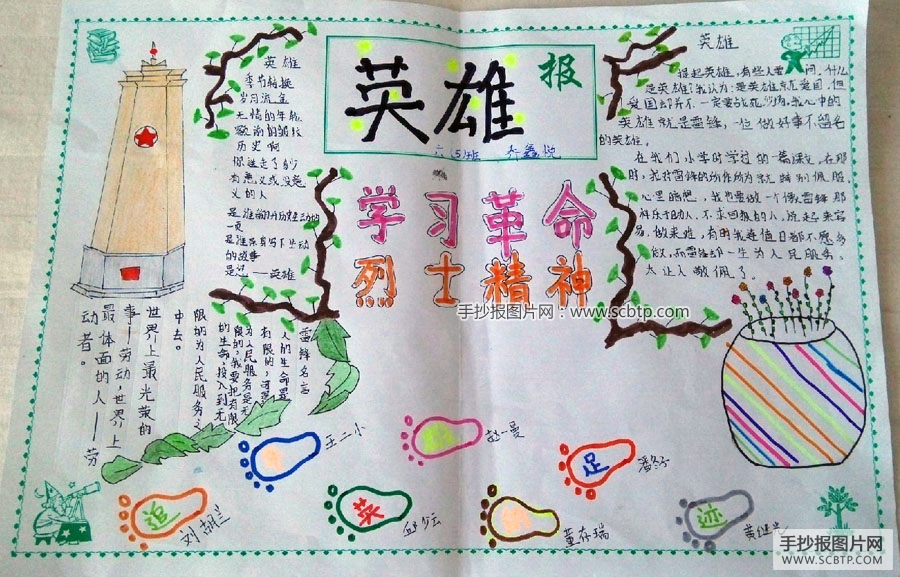 英雄
报
六(5)班 乔鑫悦
学习革命
烈士精神
英雄
季节转换
岁月流金
无情的年轮
历史啊
你送走了多少
有意义或没意
义的人
一页
的故事
是您——英雄
英雄
提起英雄，有些人要问，什么
是英雄？我认为：是英雄就是爱国，但
爱国却并不一定要战死沙场，我心中的
英雄就是雷锋，一位做好事不留名
的英雄。
在我们小学时学过的一篇课文，在那
时，我对雷锋的所作所为就特别佩服
心里暗想，我也要做一个像雷锋那
样乐于助人，不求回报的人，说起来容
易，做来难，有时我连值日都不愿多
做，而雷锋却一生为人民服务，
太让人敬佩了。
雷锋名言
人的生命是
有限的，可是
为人民服务是无
限的，我要把有限
的生命，投入到无
限的为人民服务之
中去。
世界上最光荣的
事——劳动，世界上
最体面的人——劳
动者。
手抄报图片网：www.scbtp.com
王二小
赵一曼
足
潘冬子
追
刘胡兰
英
邱少云
董存瑞
迹
黄继光
手抄报图片网
WWW.SCBTP.COM